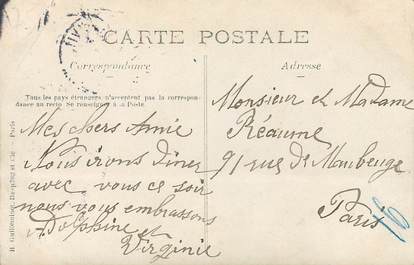 CARTE POSTALE
Correspondance
Adresse
Tous les pays étrangers n'acceptent pas la correspon-
dance au recto. Se renseigner à la Poste.
Mes chers Amie
Nous irons dîner
avec vous ce soir
nous vous embrassons
Adolphine et
Virginie
Monsieur et Madame
Réaume
91 rue de Maubeuge
Paris